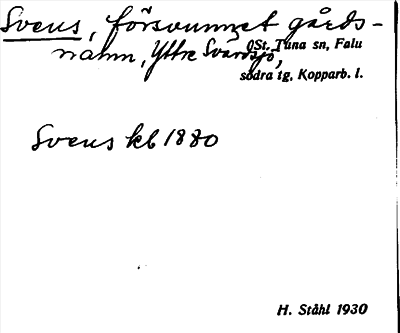 Svens, försvunnet gårds-
namn, Yttre Svärdsjö,
St. Tuna sn, Falu
södra tg, Kopparb. l.
Svens kb 1880
H. Ståhl 1930